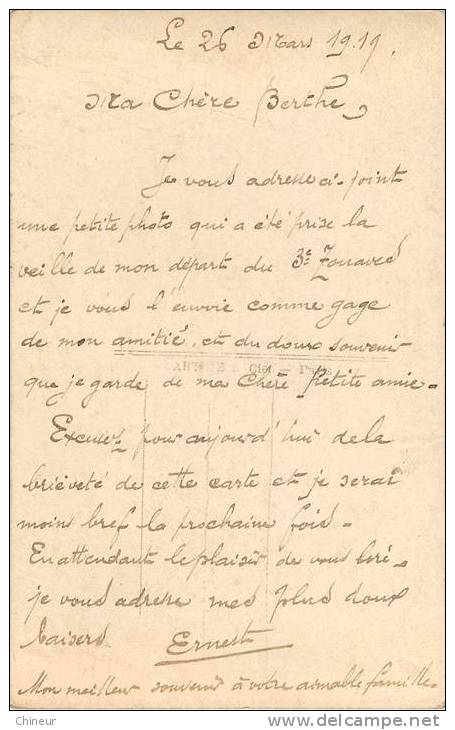 Le 26 Mars 1919.
Ma Chère Berthe
Je vous adresse ci-joint
une petite photo qui a été prise la
veille de mon départ du 3e Zouaves
et je vous l'envoie comme gage
de mon amitié, et du doux souvenir
que je garde de ma Chère Petite amie.
Excusez pour aujourd'hui de la
brièveté de cette carte et je serai
moins bref la prochaine fois.
En attendant le plaisir de vous lire.
je vous adresse mes plus doux
baisers Ernest
Mon meilleur souvenir à votre aimable famille.
Chineur www.delcampe.net